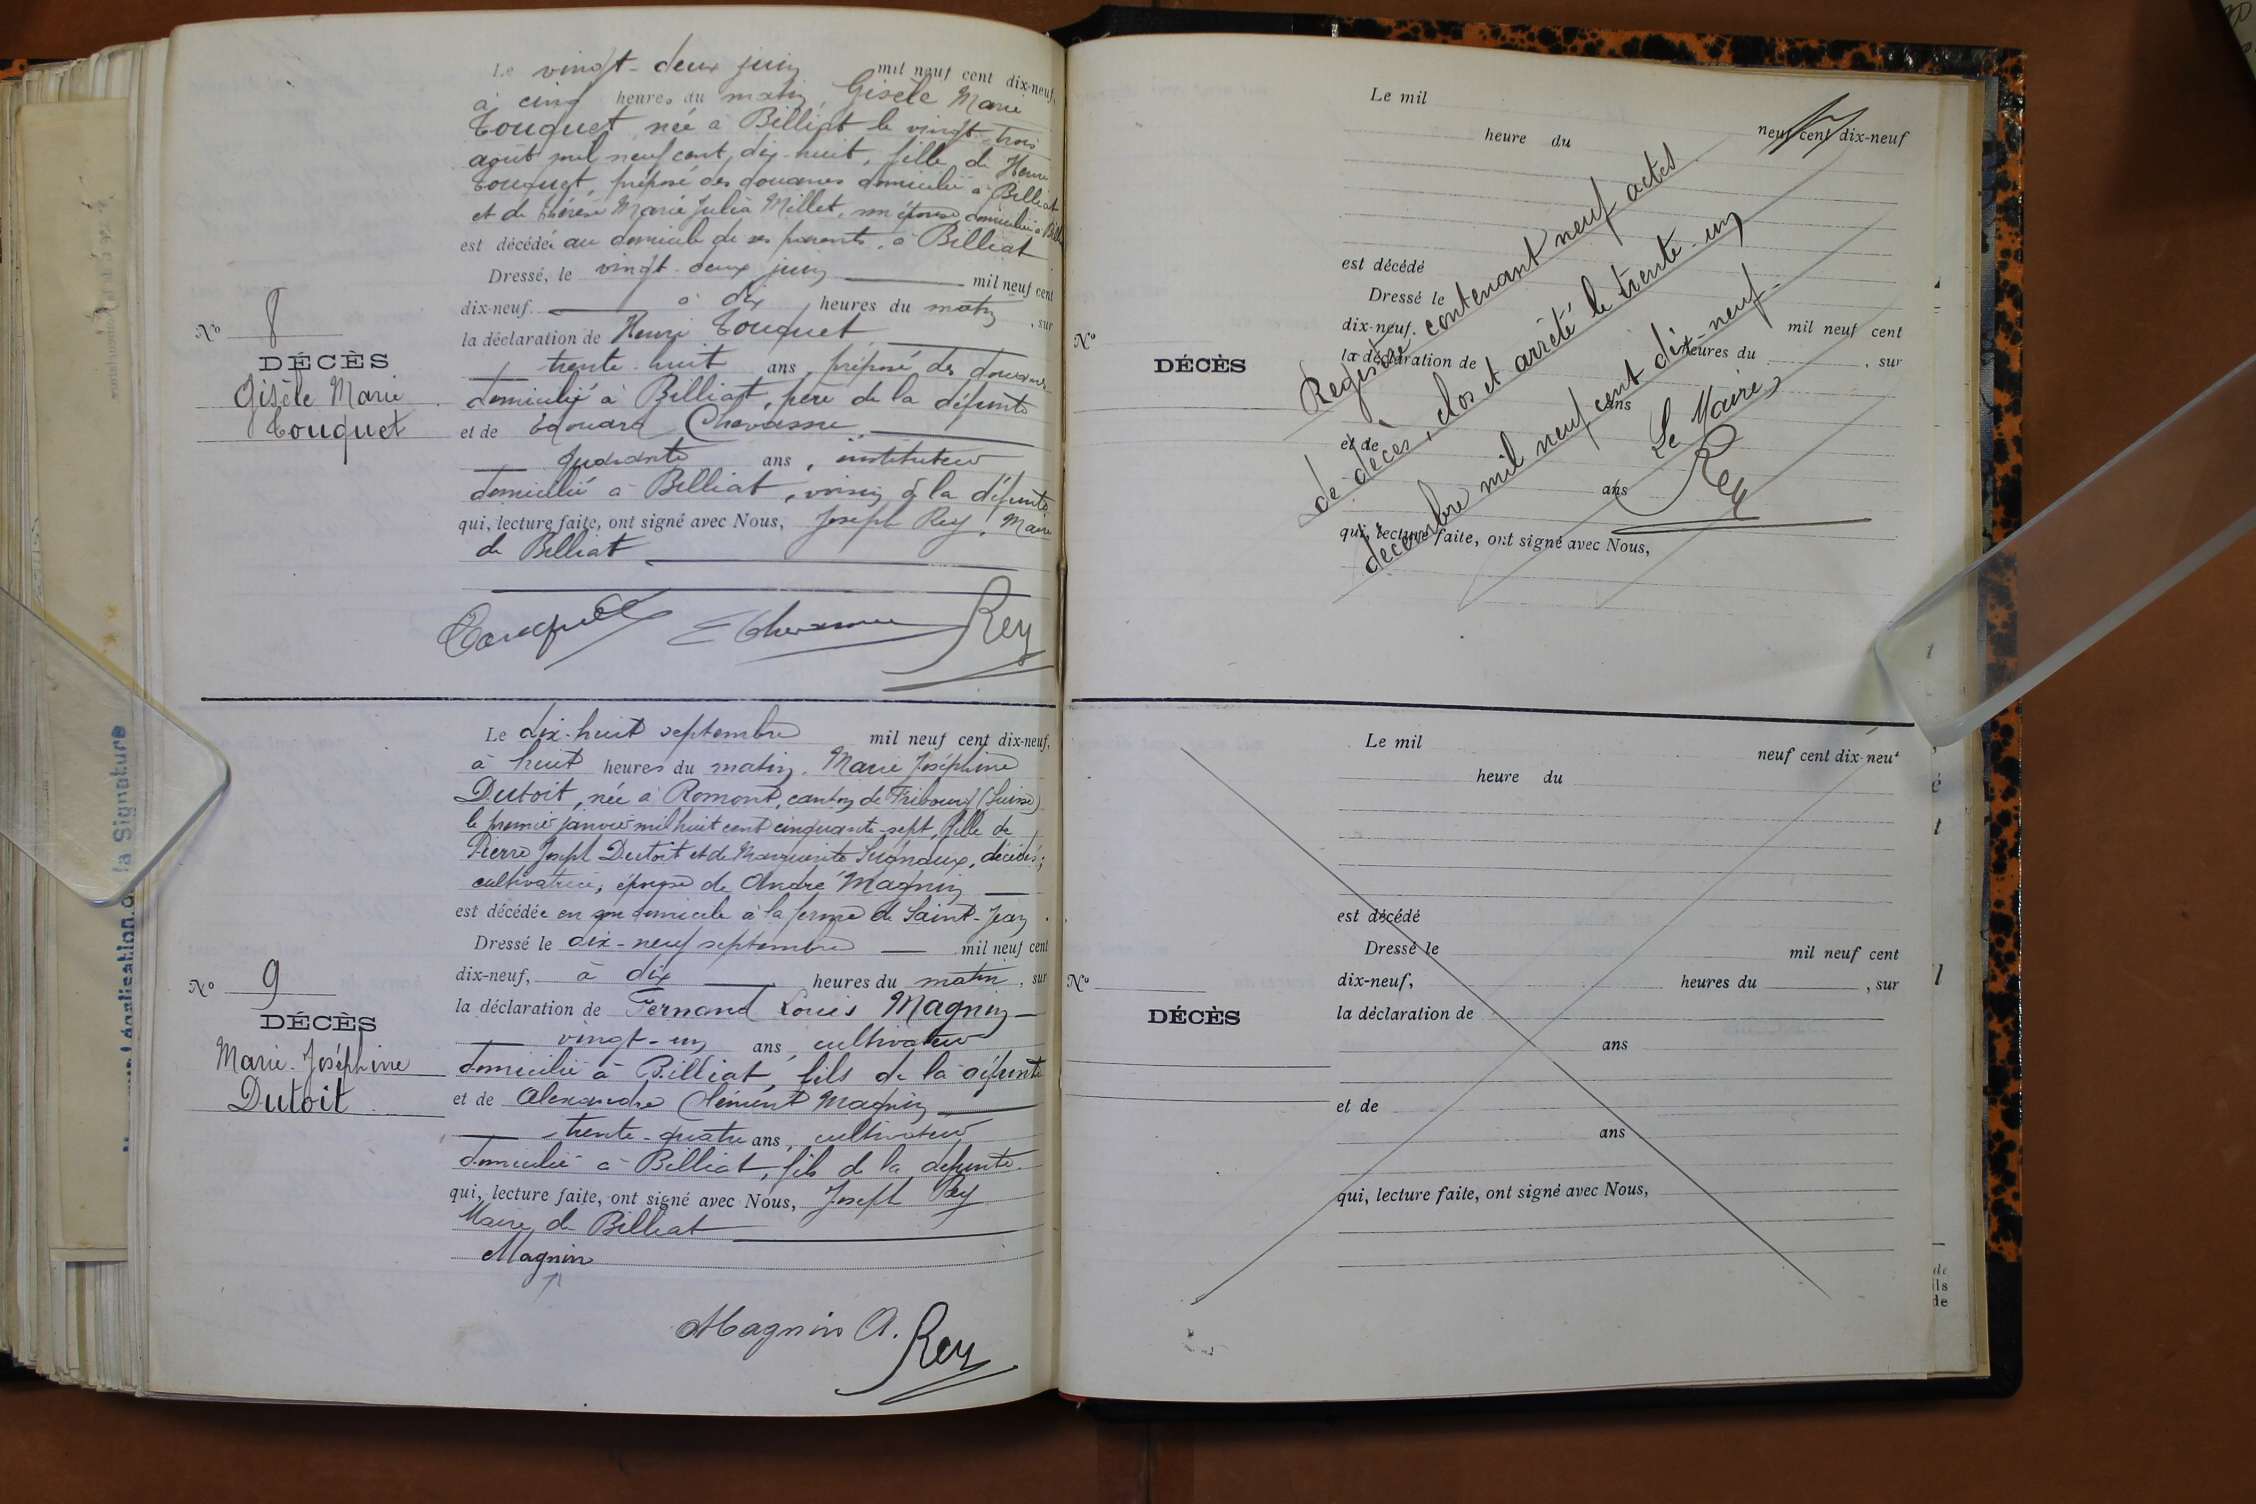 Le vingt-deux juin mil neuf cent dix-neuf,
à cinq heures du matin, Gisèle Marie
Touquet née à Billiat le vingt-trois
août mil neuf cent dix-huit, fille de Henri
Touquet, préposé des douanes domicilié à Billiat
et de Thérèse Marie Julia Millet, son épouse, domiciliée à
est décédée au domicile de ses parents, à Billiat
Dressé, le vingt-deux juin mil neuf cent
dix-neuf à dix heures du matin, sur
la déclaration de Henri Touquet
trente-huit ans, préposé des douanes
domicilié à Billiat, père de la défunte
et de Edouard Chavasse
quarante ans, instituteur
domicilié à Billiat, voisin de la défunte
qui, lecture faite, ont signé avec Nous, Joseph Rey, Maire
de Billiat
Nº 8
DÉCÈS
Gisèle Marie
Touquet
Touquet Rey
Le dix-huit septembre mil neuf cent dix-neuf,
à huit heures du matin, Marie Joséphine
Dutoit, née à Romont, canton de Fribourg (Suisse)
le premier janvier mil huit cent cinquante-sept, fille de
Pierre Joseph Dutoit et de Marguerite Sugnaux, décédés;
cultivatrice, épouse de André Magnin
est décédée en son domicile à la ferme de Saint-Jean.
Dressé le dix-neuf septembre mil neuf cent
dix-neuf, à dix heures du matin, sur
la déclaration de Fernand Louis Magnin
vingt-un ans, cultivateur
domicilié à Billiat, fils de la défunte
et de Alexandre Clément Magnin
trente-quatre ans, cultivateur
domicilié à Billiat, fils de la défunte
qui, lecture faite, ont signé avec Nous, Joseph Rey
Maire de Billiat
Nº 9
DÉCÈS
Marie-Joséphine
Dutoit
Magnin
Magnin A. Rey
la Signature
Le mil
neuf cent dix-neuf
heure du
est décédé
Dressé le
mil neuf cent
dix-neuf.
heures du , sur
la déclaration de
ans
et de
ans
qui, lecture faite, ont signé avec Nous,
Nº
DÉCÈS
Registre contenant neuf actes
de décès, clos et arrêté le trente-un
décembre mil neuf cent dix-neuf.
Le Maire,
Rey
Le mil
neuf cent dix-neuf
heure du
est décédé
Dressé le mil neuf cent
dix-neuf, heures du , sur
la déclaration de
ans
et de
ans
qui, lecture faite, ont signé avec Nous,
Nº
DÉCÈS